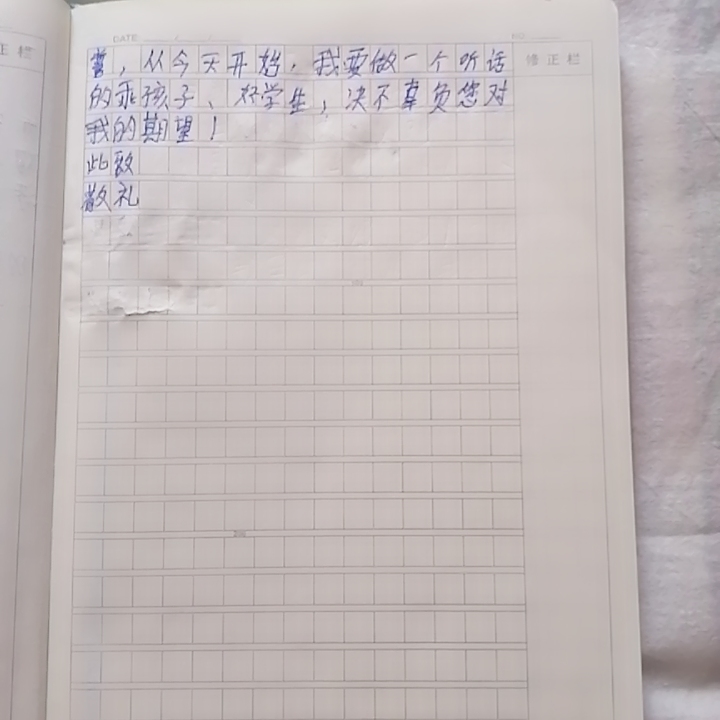 DATE / /
NO.
正栏
修正栏
誓，从今天开始，我要做一个听话
的乖孩子、好学生，决不辜负您对
我的期望！
此致
敬礼
200